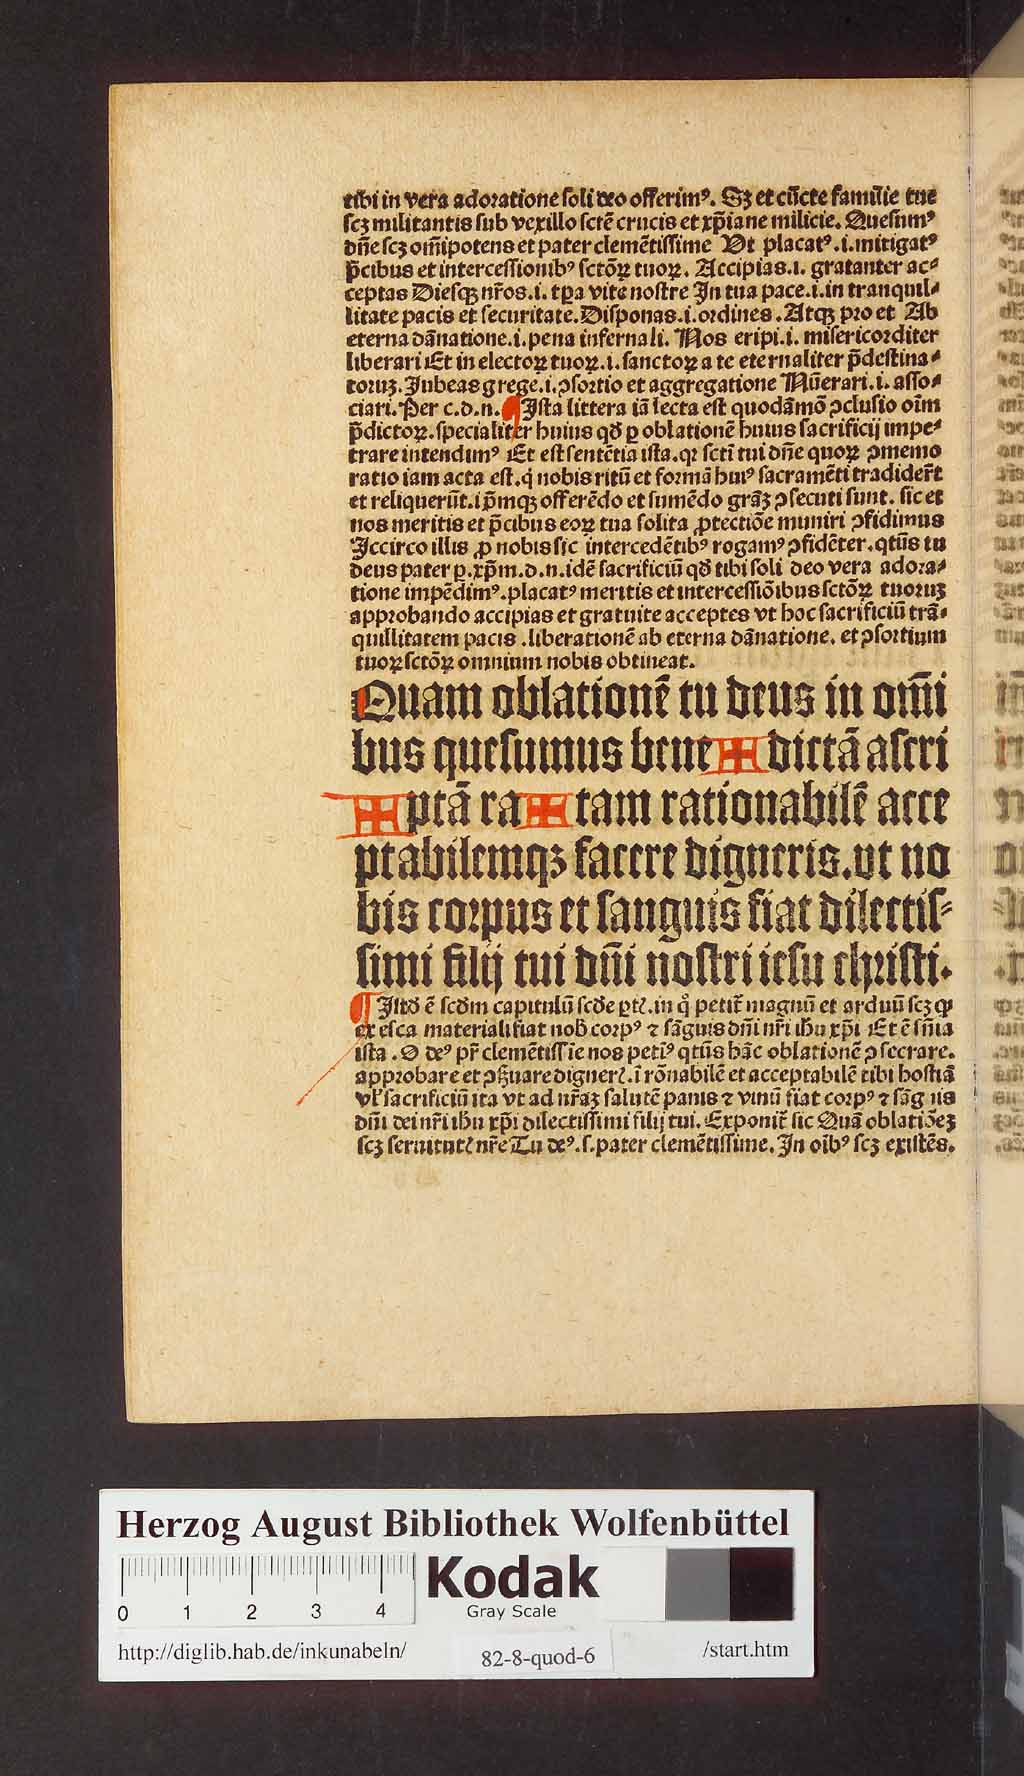 tibi in vera adoratione soli deo offerimꝰ. Sꝫ et cūcte familie tue
scꝫ militantis sub vexillo sctē crucis et xp̄iane milicie. Quesumꝰ
dn̄e scꝫ om̄ipotens et pater clemētissime Vt placatꝰ .i. mitigatꝰ
p̄cibus et intercessionibꝰ sctōꝝ tuoꝝ. Accipias .i. gratanter ac⸗
ceptas Diesqꝫ nr̄os .i. tꝑa vite nostre In tua pace .i. in tranquil⸗
litate pacis et securitate. Disponas .i. ordines. Atqꝫ pro et Ab
eterna dānatione .i. pena infernali. Nos eripi .i. misericorditer
liberari Et in electoꝝ tuoꝝ .i. sanctoꝝ a te eternaliter p̄destina⸗
toruꝫ. Jubeas grege .i. ꝯsortio et aggregatione Nūerari .i. asso⸗
ciari. Per c.d.n. ¶ Ista littera iā lecta est quodāmō ꝯclusio oīm
p̄dictoꝝ. specialiter huius qd̄ ꝑ oblationē huius sacrificij impe⸗
trare intendimꝰ Et est sentētia ista. qꝛ scti tui dn̄e quoꝝ ꝯmemo
ratio iam acta est. q̇ nobis ritū et formā huiꝰ sacramēti tradider̄t
et reliquerūt. ip̄mqꝫ offerēdo et sumēdo grāꝫ ꝯsecuti sunt. sic et
nos meritis et p̄cibus eoꝝ tua solita ꝓtectiōe muniri ꝯfidimus
Iccirco illis ꝓ nobis sic intercedētibꝰ rogamꝰ ꝯfidēter. qtūs tu
deus pater ꝑ. xp̄m. d. n. idē sacrificiū qd̄ tibi soli deo vera adora⸗
tione impēdimꝰ. placatꝰ meritis et intercessiōibus sctōꝝ tuoruꝫ
approbando accipias et gratuite acceptes vt hoc sacrificiū trā⸗
quillitatem pacis. liberationē ab eterna dānatione. et ꝯsortium
tuoꝝ sctōꝝ omnium nobis obtineat.
Quam oblationē tu deus in om̄i
bus quesumus bene ✠ dictā ascri
✠ ptā ra ✠ tam rationabilē acce
ptabilemqꝫ facere digneris. vt no
bis corpus et sanguis fiat dilectis⸗
simi filij tui dn̄i nostri iesu christi.
¶ Istd̄ ē scd̄m capitulū scd̄e ꝑtꝭ. in qͦ petit̄ magnū et arduū scꝫ ꝙ
ex esca materiali fiat nob̄ corpꝰ ⁊ sāguis dn̄i nr̄i ih̄u xp̄i Et ē sn̄ia
ista. O deꝰ pr̄ clemētissīe nos petiꝰ qtūs hāc oblationē ꝯsecrare.
approbare et ꝯẜuare dignerꝭ. ī rōnabilē et acceptabilē tibi hostiā
vl̄ sacrificiū ita vt ad nr̄aꝫ salutē panis ⁊ vinū fiat corpꝰ ⁊ sāg iis
dn̄i dei nr̄i ih̄u xp̄i dilectissimi filij tui. Exponit̄ sic Quā oblatiōeꝫ
scꝫ seruitutꝭ nr̄e Tu deꝰ .s. pater clemētissime. In oībꝰ scꝫ existēs.
Herzog August Bibliothek Wolfenbüttel
0 1 2 3 4
Kodak
Gray Scale
http://diglib.hab.de/inkunabeln/ 82-8-quod-6 /start.htm